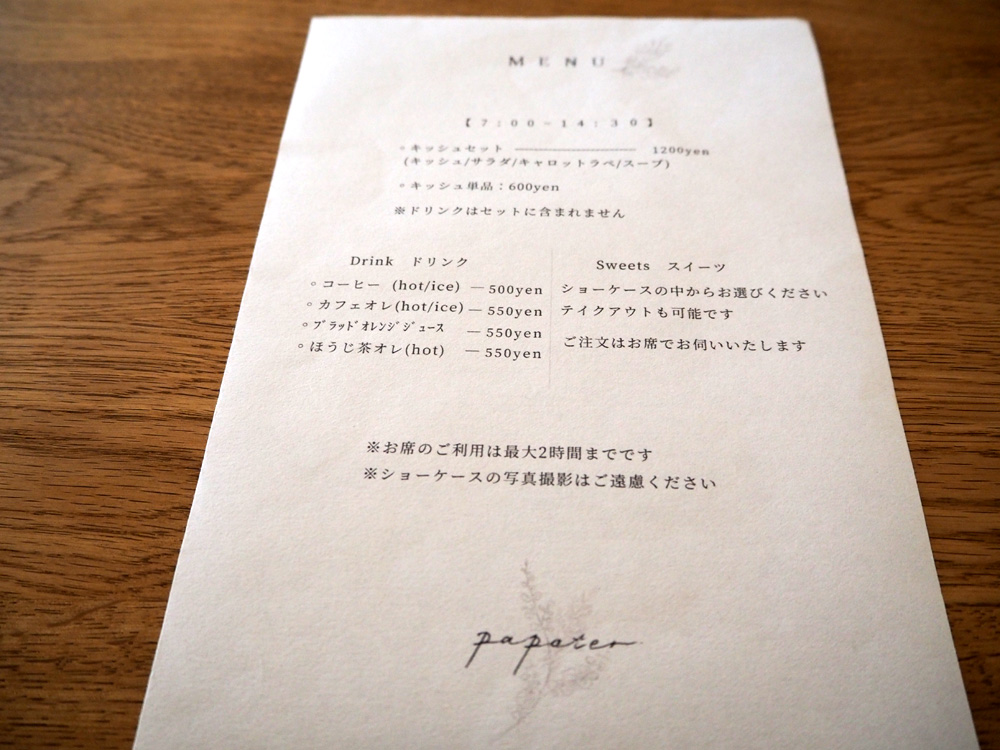 MENU
【7:00-14:30】
◦キッシュセット ———— 1200yen
(キッシュ/サラダ/キャロットラペ/スープ)
◦キッシュ単品：600yen
※ドリンクはセットに含まれません
Drink ドリンク
◦コーヒー (hot/ice) —500yen
◦カフェオレ(hot/ice)—550yen
◦ﾌﾞﾗｯﾄﾞｵﾚﾝｼﾞｼﾞｭｰｽ —550yen
◦ほうじ茶オレ(hot) —550yen
Sweets スイーツ
ショーケースの中からお選びください
テイクアウトも可能です
ご注文はお席でお伺いいたします
※お席のご利用は最大2時間までです
※ショーケースの写真撮影はご遠慮ください